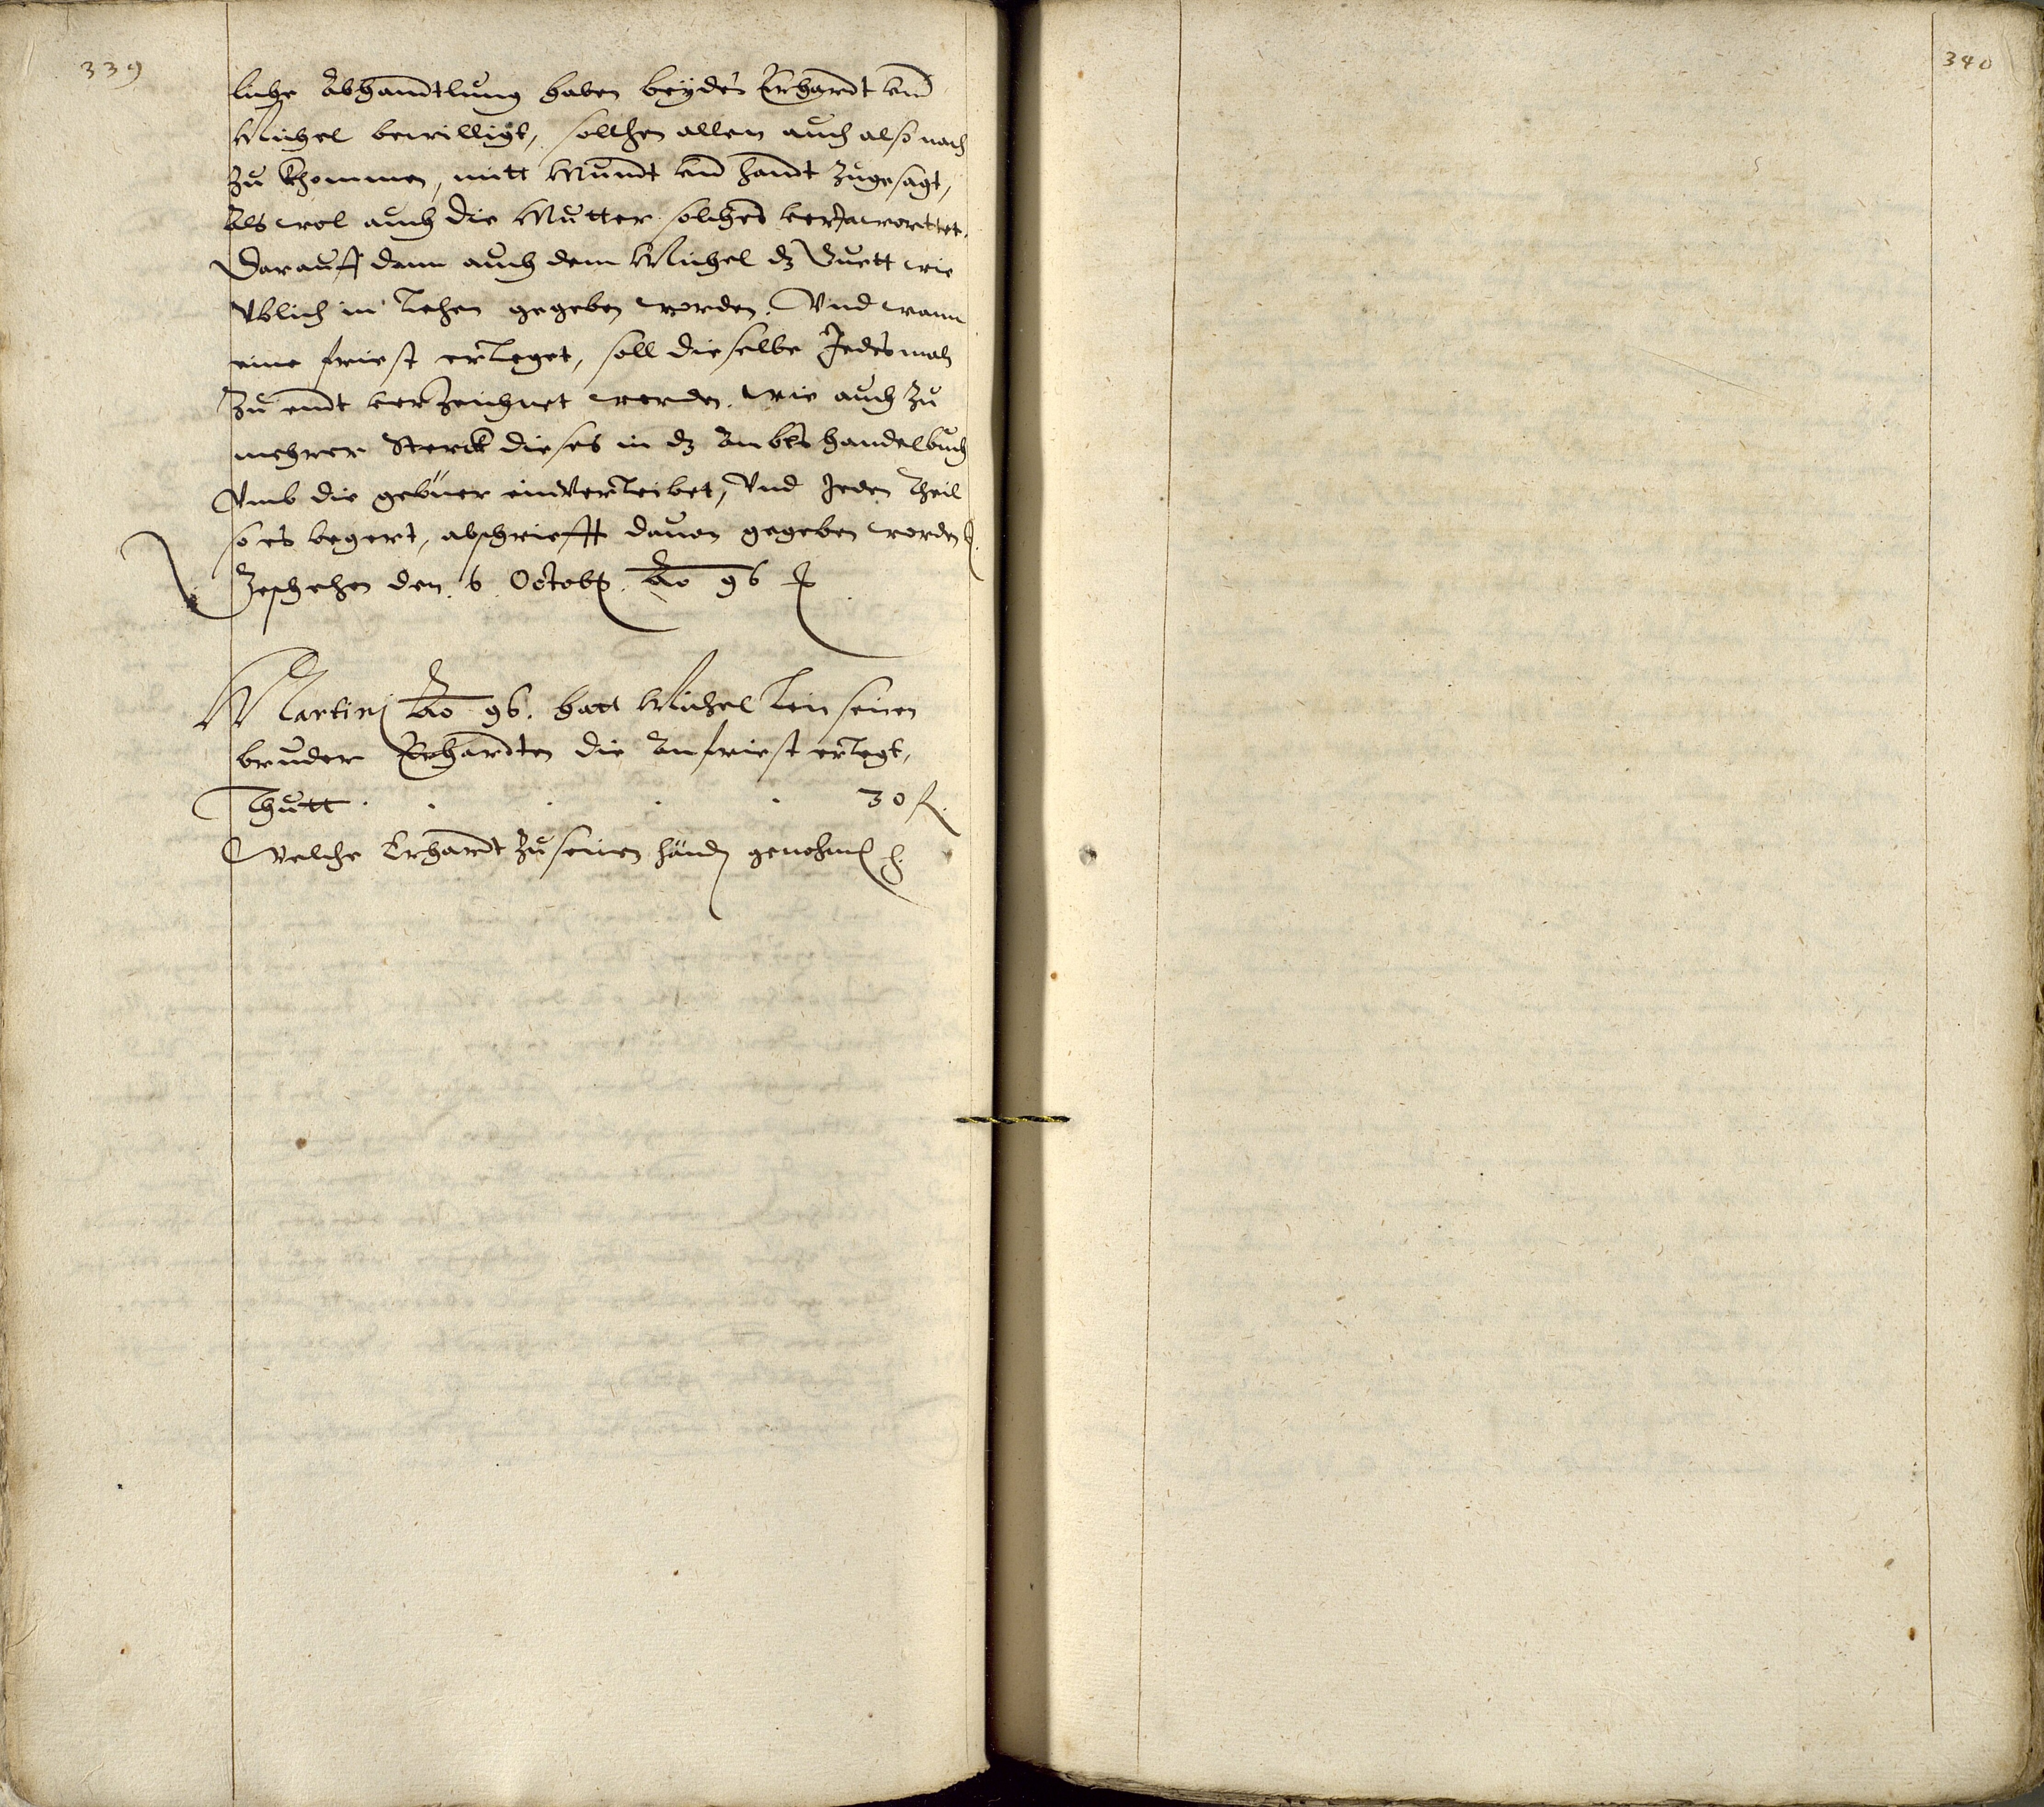 339
liche Abhandtlung haben beyde Erhardt vnd
Michel bewilligt, solchem allem auch also nach
zu khommen, mitt Mundt vnd handt zugesagt,
Als wol auch die Mutter solches verJawortet.
Darauff dann auch dem Michel dz Guett wie
Vblich in Lehen gegeben worden. Vnd wann
eine friest erleget, soll dieselbe Jedesmals
zu endt verzeichnet werden. wie auch zu
mehrer Sterck dieses in dz Ambts handelbuch
Vmb die gebüer einverleibet, Vnd Jeden theil
so es begert, abschriefft dauon gegeben worden
Geschehen den 6 Octob. Ao 96
Martini Ao 96. hatt Michel seinen
bruder Erhardten die Anfriest erlegt,
Thutt . . . . . 30 fl.
Welche Erhardt zu seinen händen genohmen
340